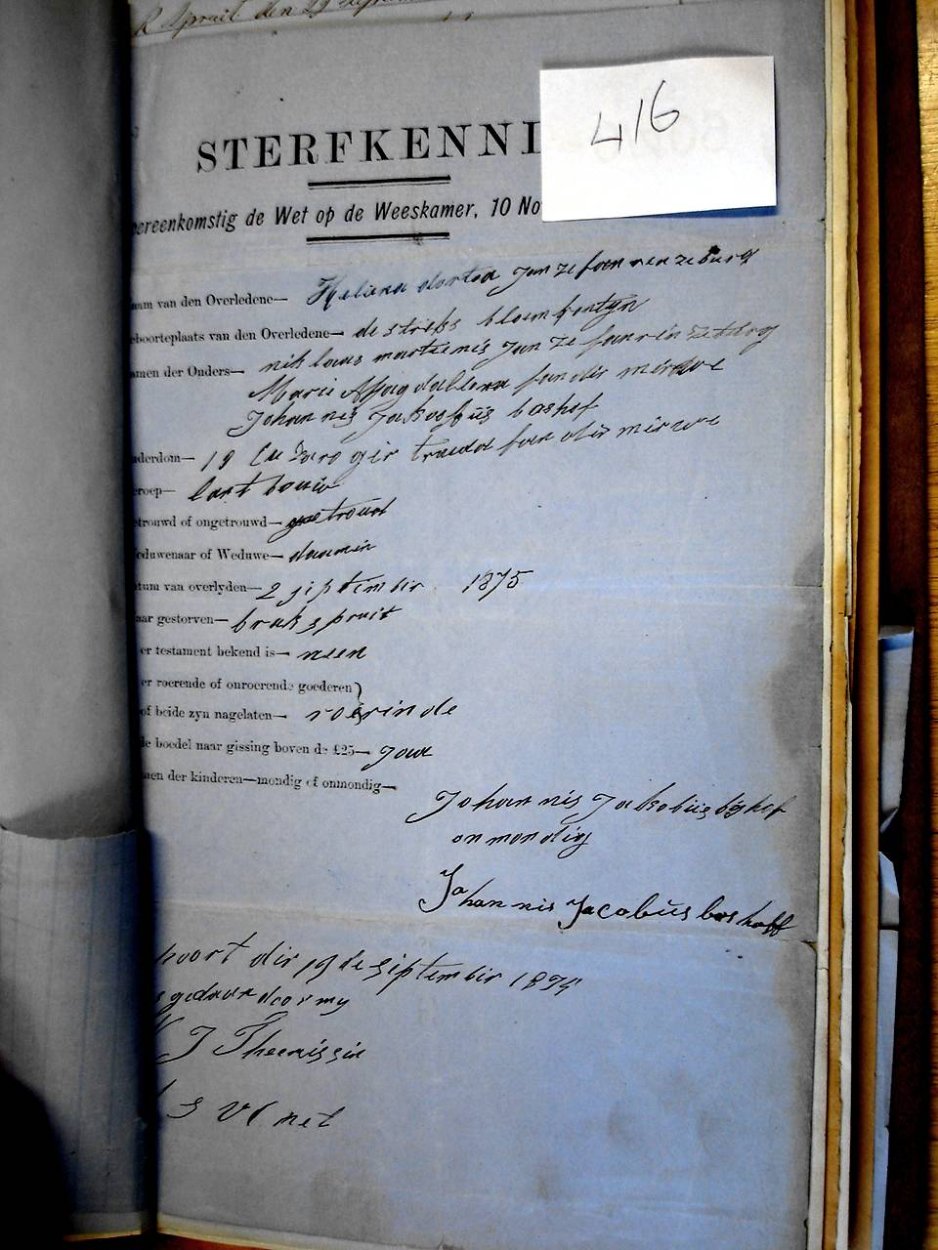 Spruit den 29
416
STERFKENNI
ereenkomstig de Wet op de Weeskamer, 10 No
am van den Overledene— Helena dortea Janze fan renzeburg
boorteplaats van den Overledene— de streks bloemfontyn
amen der Ouders— niklaas martienis Janze fan rénzeburg
Marie Magdallena fan dir mirwe
Johannis Jakoobüs boshof
derdom— 19
roep— lant bouw
trouwd of ongetrouwd— getroud
eduwenaar of Weduwe—
tum van overlyden— 2 siptembir 1875
aar gestorven— brakspruit
er testament bekend is— neen
er roerende of onroerende goederen)
of beide zyn nagelaten— roerinde
de boedel naar gissing boven de £25— Jaa
men der kinderen—mondig of onmondig—
Johannis Jakobüs boshof
onmondig
Johannis Jacobüs boshoff
poort dir 19 de siptembir 1875
gedaan door my
J Theenissin